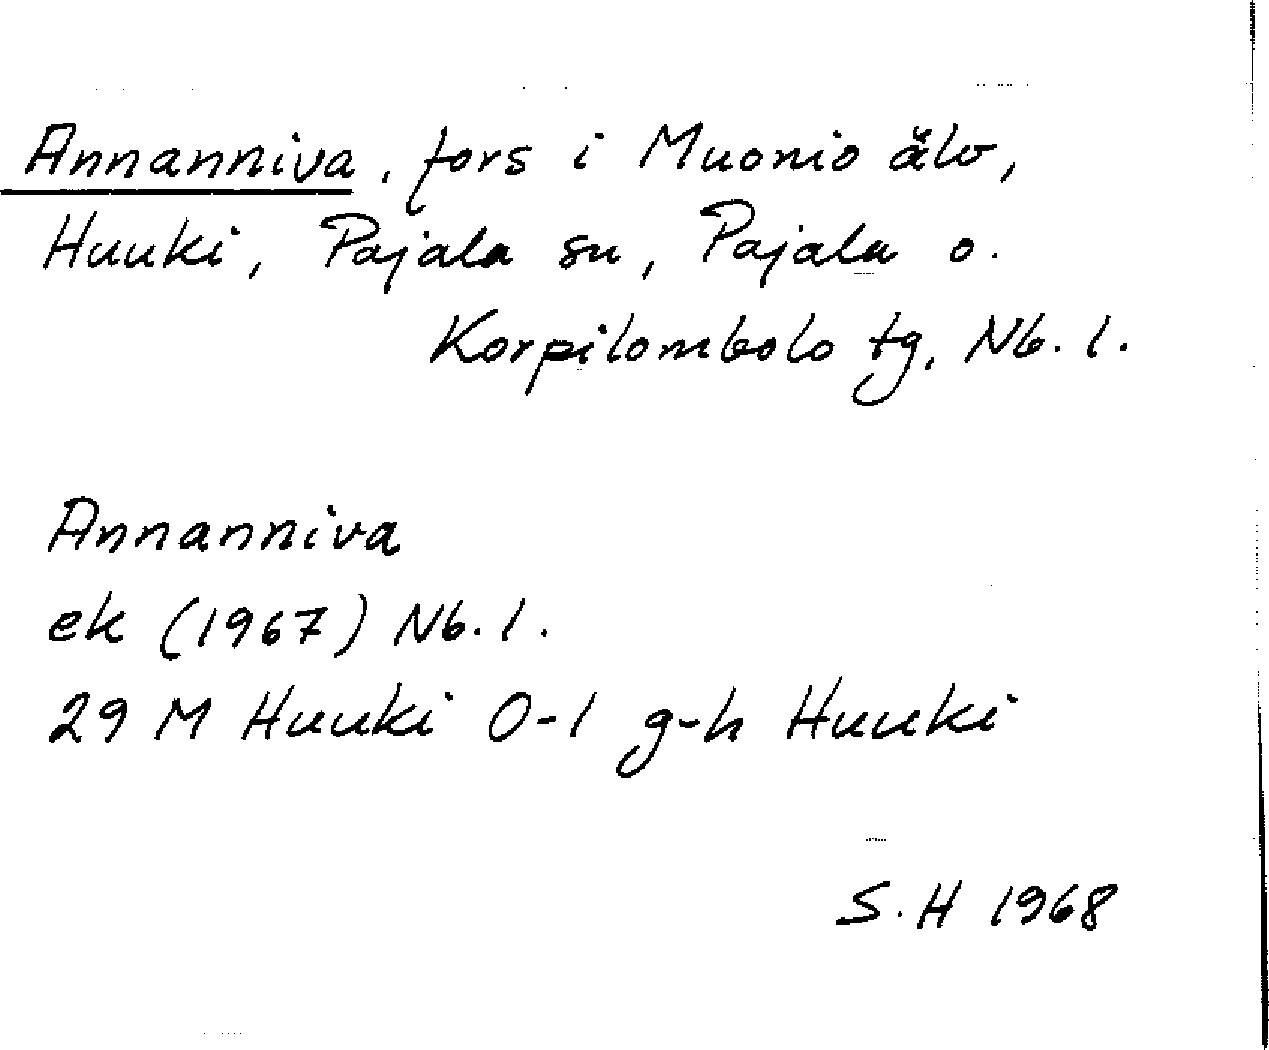 Annanniva, fors i Muonio älv,
Huuki, Pajala sn, Pajala o.
Korpilombolo tg, Nb. l.
Annanniva
ek (1967) Nb. l.
29 M Huuki 0-1 g-h Huuki
S.H 1968